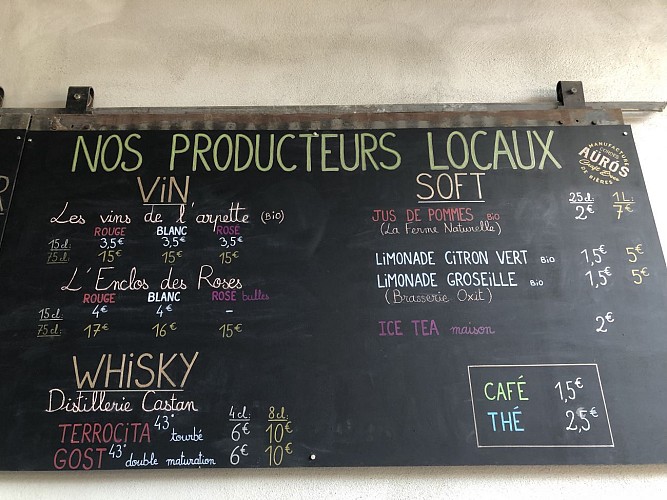 NOS PRODUCTEURS LOCAUX
MANUFACTURE
AÜROS
DE BIÈRES
VIN
Les vins de l'arpette (Bio)
ROUGE BLANC ROSÉ
15 cl: 3,5€ 3,5€ 3,5€
75 cl: 15€ 15€ 15€
L'Enclos des Roses
ROUGE BLANC ROSÉ bulles
15 cl: 4€ 4€ -
75 cl: 17€ 16€ 15€
WHISKY
Distillerie Castan
4 cl: 8 cl:
TERROCITA 43° tourbé 6€ 10€
GOST 43° double maturation 6€ 10€
SOFT
25 cl: 1L:
JUS DE POMMES Bio 2€ 7€
(La Ferme Naturelle)
LIMONADE CITRON VERT Bio 1,5€ 5€
LIMONADE GROSEILLE Bio 1,5€ 5€
(Brasserie Oxit)
ICE TEA maison 2€
CAFÉ 1,5€
THÉ 2,5€